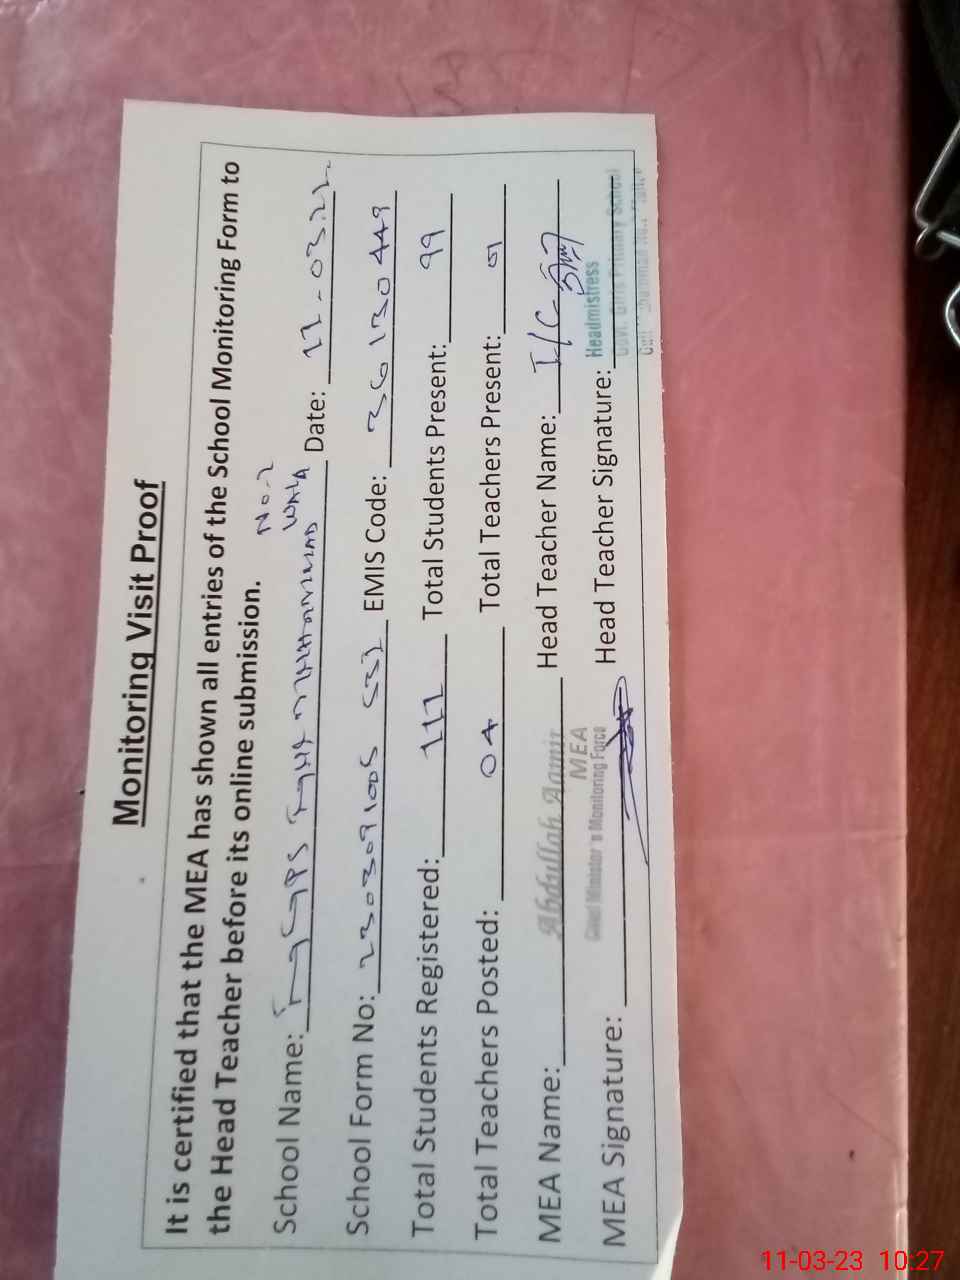 Monitoring Visit Proof
It is certified that the MEA has shown all entries of the School Monitoring Form to
the Head Teacher before its online submission.
No.2
School Name: WALA Date: 11-03.22
School Form No: 230309100S EMIS Code: 36130449
Total Students Registered: 111 Total Students Present: 99
Total Teachers Posted: 04 Total Teachers Present:
MEA Name: Abdullah Aamir Head Teacher Name: I/C
MEA
Chief Minister's Monitoring Force
Headmistress
MEA Signature: Head Teacher Signature:
Govt. Girls Primary School
11-03-23 10:27